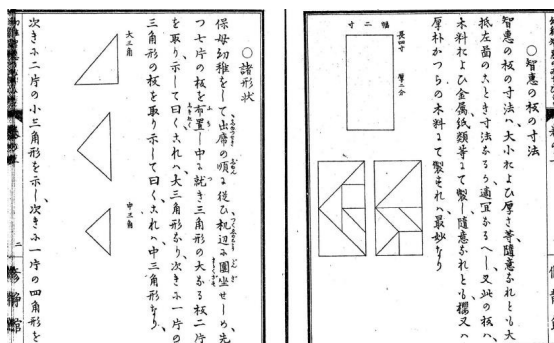 ○智恵の板の寸法
智恵の板の寸法ハ大小および厚さ等随意なれとも大
抵左圖のごとき寸法なるは適宜なるべし又此の板ハ
木料および金属紙類等にて製し随意なれとも櫻又ハ
厚朴かつらの木料にて製せれハ最妙なり
幅二寸
長四寸
厚二分
○諸形状
保母幼稚をして出席の順に従ひ机辺に圍坐せしめ先
つ七片の板を布置し中に就き三角形の大なる板二片
を取り示して曰くこれハ大三角形なり次きに一片の
三角形の板を取り示して曰くこれハ中三角形なり
大三角
中三角
次きに二片の小三角形を示し次きに一片の四角形を
二
修静館